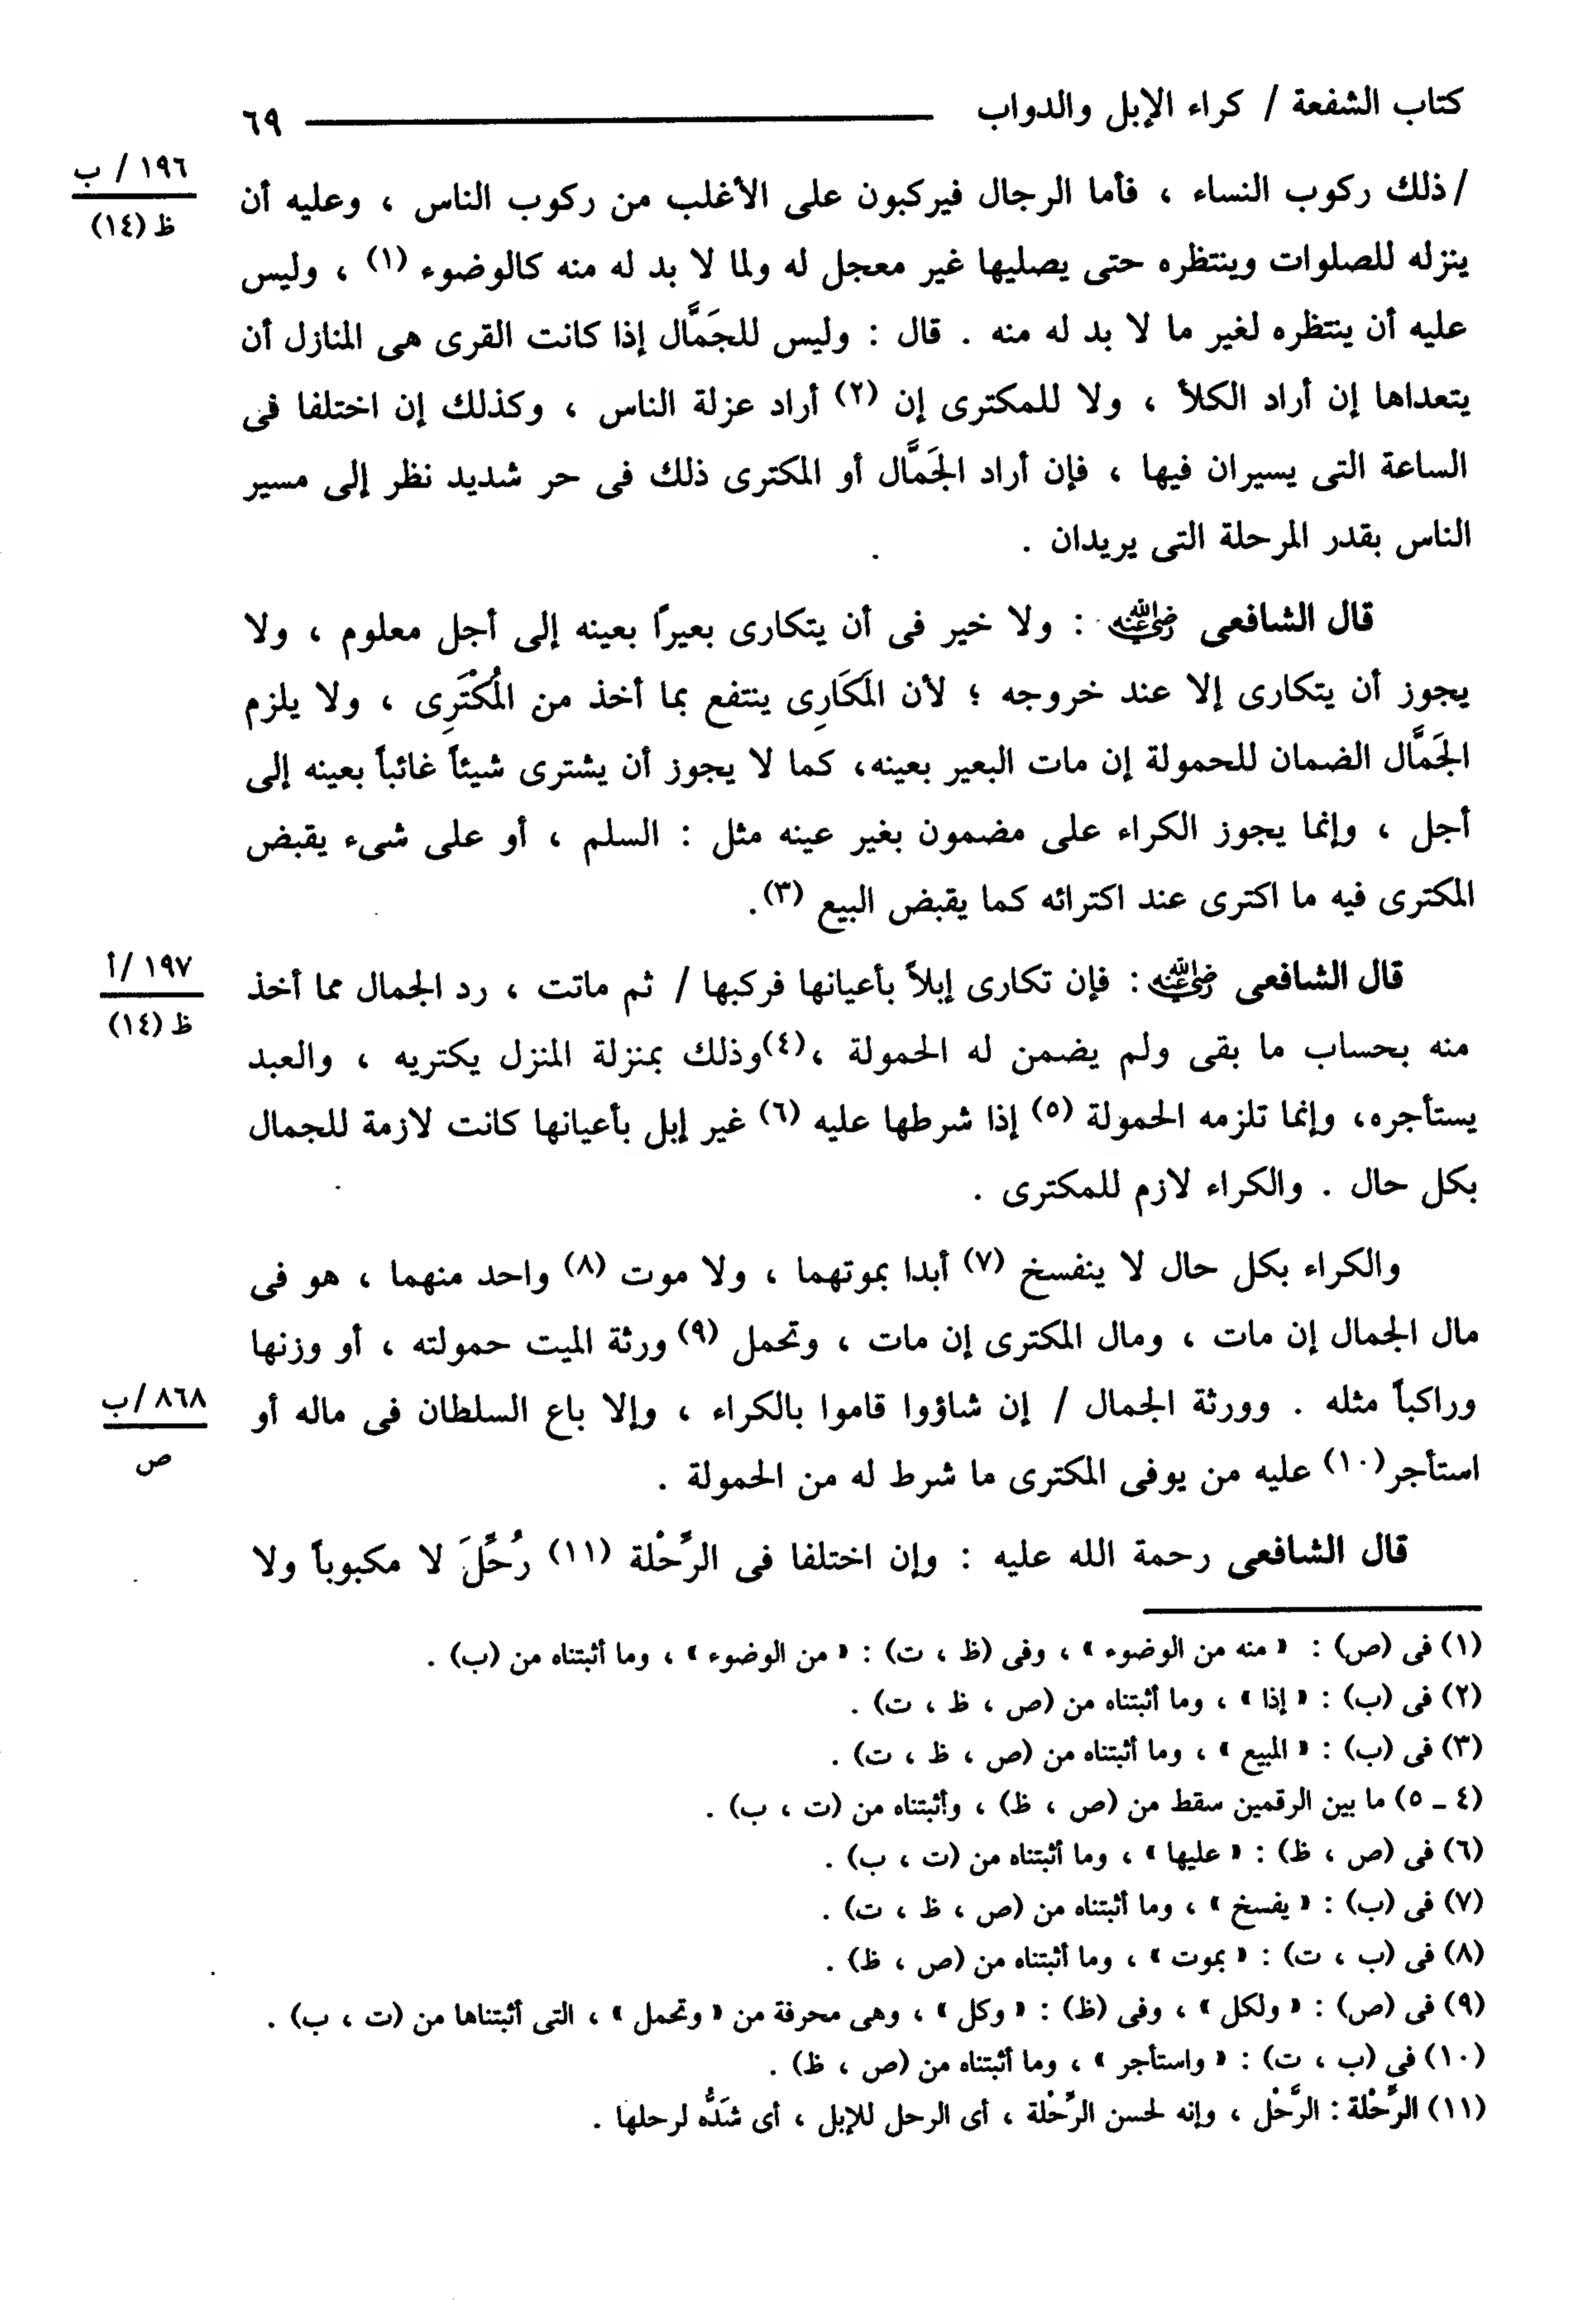 كتاب الشفعة / كراء الإبل والدواب ــــــ ٦٩
١٩٦ / ب
ظ (١٤)
/ ذلك ركوب النساء ، فأما الرجال فيركبون على الأغلب من ركوب الناس ، وعليه أن
ينزله للصلوات وينتظره حتى يصليها غير معجل له ولما لا بد له منه كالوضوء (١) ، وليس
عليه أن ينتظره لغير ما لا بد له منه . قال : وليس للجَمَّال إذا كانت القرى هى المنازل أن
يتعداها إن أراد الكلأ ، ولا للمكترى إن (٢) أراد عزلة الناس ، وكذلك إن اختلفا فى
الساعة التى يسيران فيها ، فإن أراد الجَمَّال أو المكترى ذلك فى حر شديد نظر إلى مسير
الناس بقدر المرحلة التى يريدان .
قال الشافعى رضي الله عنه : ولا خير فى أن يتكارى بعيراً بعينه إلى أجل معلوم ، ولا
يجوز أن يتكارى إلا عند خروجه ؛ لأن المَكَارِى ينتفع بما أخذ من المُكْتَرِى ، ولا يلزم
الجَمَّال الضمان للحمولة إن مات البعير بعينه، كما لا يجوز أن يشترى شيئاً غائباً بعينه إلى
أجل ، وإنما يجوز الكراء على مضمون بغير عينه مثل : السلم ، أو على شىء يقبض
المكترى فيه ما اكترى عند اكترائه كما يقبض البيع (٣).
١٩٧ /أ
ظ (١٤)
قال الشافعى رضي الله عنه : فإن تكارى إبلاً بأعيانها فركبها / ثم ماتت ، رد الجمال مما أخذ
منه بحساب ما بقى ولم يضمن له الحمولة ،(٤)وذلك بمنزلة المنزل يكتريه ، والعبد
يستأجره، وإنما تلزمه الحمولة (٥) إذا شرطها عليه (٦) غير إبل بأعيانها كانت لازمة للجمال
بكل حال . والكراء لازم للمكترى .
والكراء بكل حال لا ينفسخ (٧) أبدا بموتهما ، ولا موت (٨) واحد منهما ، هو فى
مال الجمال إن مات ، ومال المكترى إن مات ، وتحمل (٩) ورثة الميت حمولته ، أو وزنها
وراكباً مثله . وورثة الجمال / إن شاؤوا قاموا بالكراء ، وإلا باع السلطان فى ماله أو
٨٦٨ /ب
ص
استأجر(١٠) عليه من يوفى المكترى ما شرط له من الحمولة .
قال الشافعى رحمة الله عليه : وإن اختلفا فى الرِّحْلة (١١) رُحِّلَ لا مكبوباً ولا
(١) فى (ص) : « منه من الوضوء » ، وفى (ظ ، ت) : « من الوضوء » ، وما أثبتناه من (ب) .
(٢) فى (ب) : « إذا » ، وما أثبتناه من (ص ، ظ ، ت) .
(٣) فى (ب) : « المبيع » ، وما أثبتناه من (ص ، ظ ، ت) .
(٤ ـ ٥) ما بين الرقمين سقط من (ص ، ظ) ، وأثبتناه من (ت ، ب) .
(٦) فى (ص ، ظ) : « عليها » ، وما أثبتناه من (ت ، ب) .
(٧) فى (ب) : « يفسخ » ، وما أثبتناه من (ص ، ظ ، ت) .
(٨) فى (ب ، ت) : « بموت » ، وما أثبتناه من (ص ، ظ) .
(٩) فى (ص) : « ولكل » ، وفى (ظ) : « وكل » ، وهى محرفة من « وتحمل » ، التى أثبتناها من (ت ، ب) .
(١٠) في (ب ، ت) : « واستأجر » ، وما أثبتناه من (ص ، ظ) .
(١١) الرِّحْلة : الرَّحْل ، وإنه لحسن الرِّحْلة ، أى الرحل للإبل ، أى شَدُّه لرحلها .